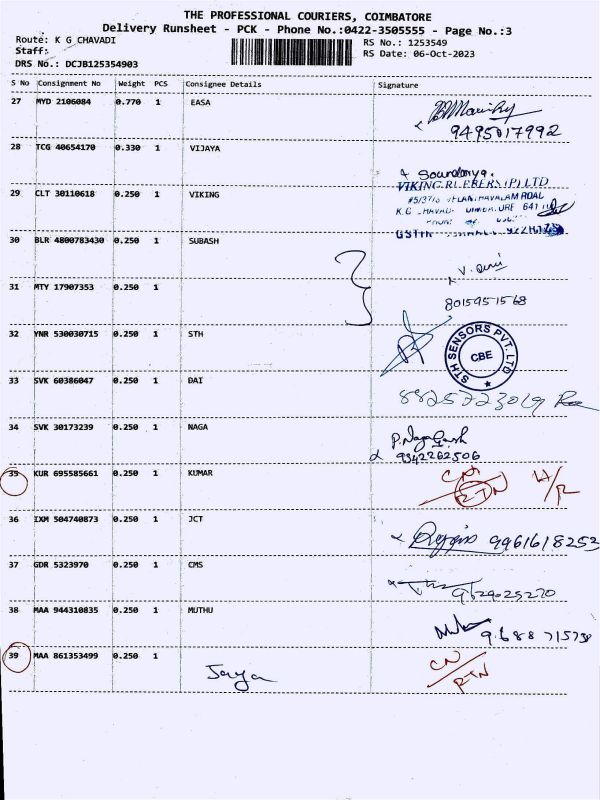 THE PROFESSIONAL COURIERS, COIMBATORE
Delivery Runsheet - PCK - Phone No.:0422-3505555 - Page No.:3
Route: K G CHAVADI
RS No.: 1253549
Staff:
RS Date: 06-Oct-2023
DRS No.: DCJB125354903
S No Consignment No Weight PCS Consignee Details Signature
27 MYD 2106084 0.770 1 EASA
9495017992
28 TCG 40654170 0.330 1 VIJAYA
Soundarya.
VIKING (P) LTD
29 CLT 30110618 0.250 1 VIKING
K.G 641
30 BLR 4800783430 0.250 1 SUBASH
GSTIN
31 MTY 17907353 0.250 1
8015951568
32 YNR 530030715 0.250 1 STH
STH SENSORS PVT. LTD
CBE
33 SVK 60386047 0.250 1 DAI
8825723019
34 SVK 30173239 0.250 1 NAGA
P. Nagalash
9342262506
35 KUR 695585661 0.250 1 KUMAR
CN
RTN
H/R
36 IXM 504740873 0.250 1 JCT
9961618253
37 GDR 5323970 0.250 1 CMS
9629025270
38 MAA 944310835 0.250 1 MUTHU
9688 715738
39 MAA 861353499 0.250 1
Jaya
CN
RTN